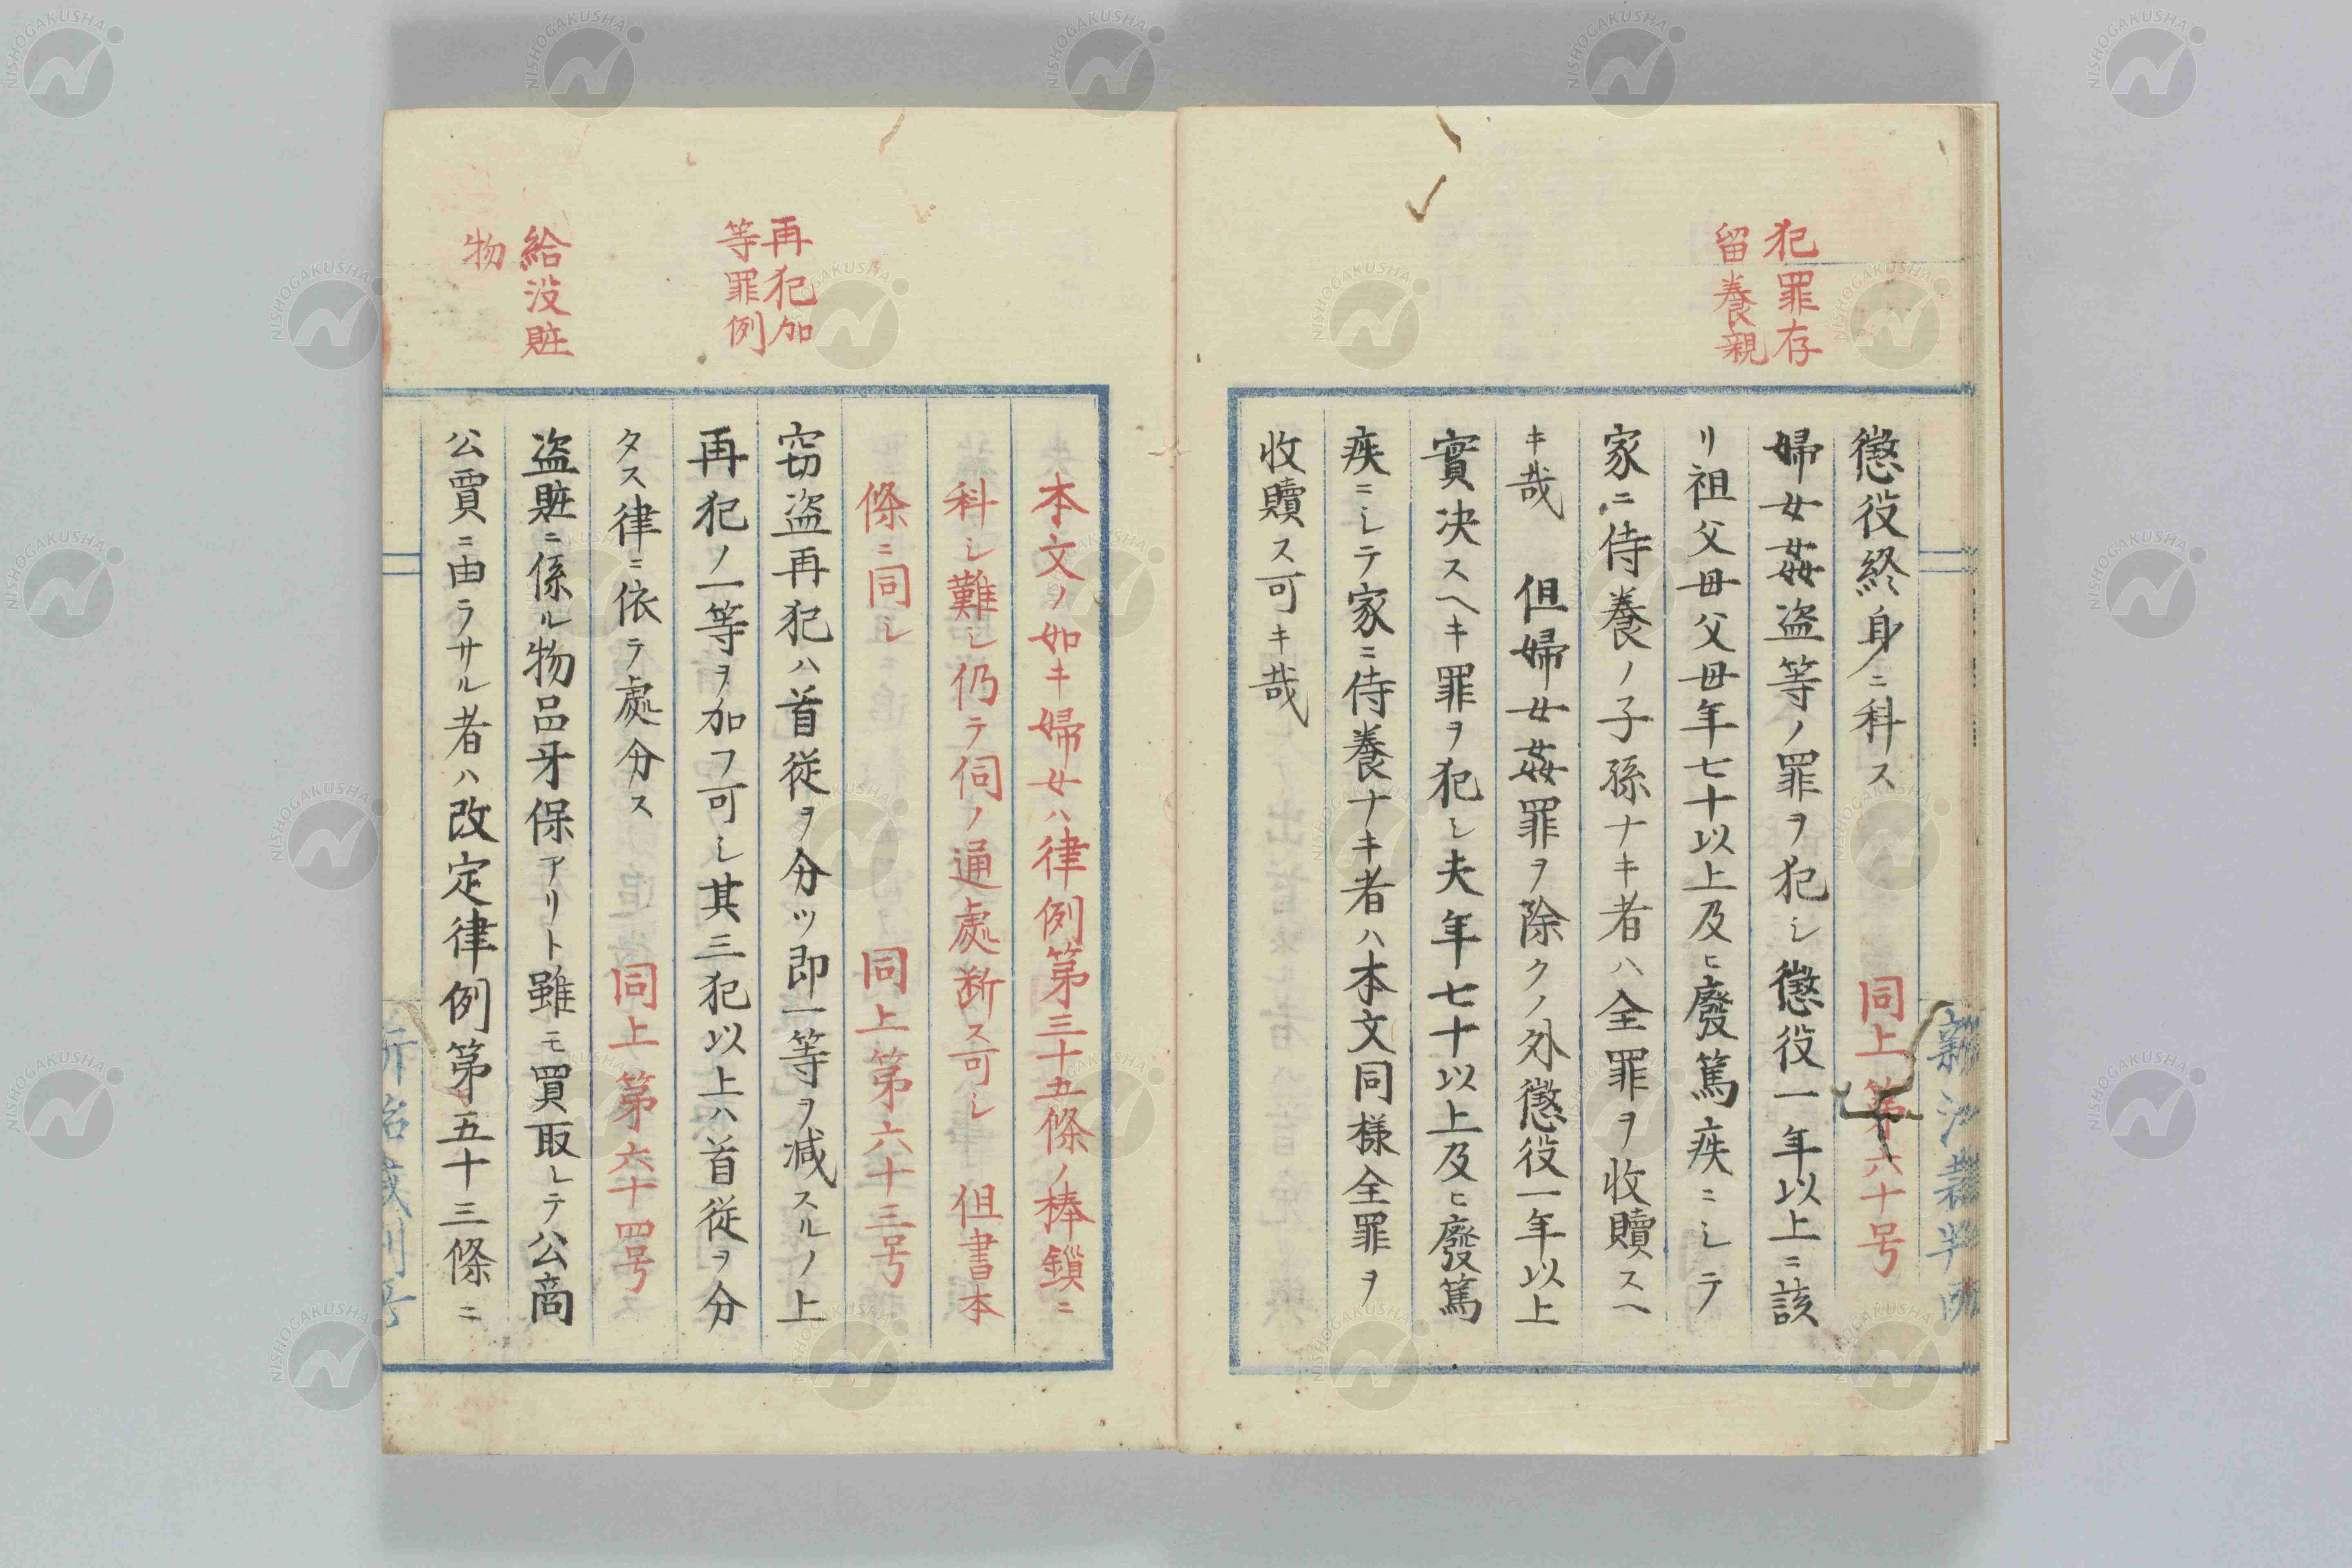 犯罪存
留養親
懲役終身ニ科ス
同上第六十号
婦女姦盗等ノ罪ヲ犯シ懲役一年以上ニ該
リ祖父母父母年七十以上及ヒ廢篤疾ニシテ
家ニ侍養ノ子孫ナキ者ハ全罪ヲ收贖スヘ
キ哉 但婦女姦罪ヲ除クノ外懲役一年以上
實决スヘキ罪ヲ犯シ夫年七十以上及ヒ廢篤
疾ニシテ家ニ侍養ナキ者ハ本文同樣全罪ヲ
收贖ス可キ哉
本文ノ如キ婦女ハ律例第三十五條ノ棒鎖ニ
科シ難シ仍テ伺ノ通處断ス可シ 但書本
條ニ同シ
同上第六十三号
再犯加
等罪例
窃盗再犯ハ首従ヲ分ツ即一等ヲ減スルノ上
再犯ノ一等ヲ加フ可シ其三犯以上ハ首従ヲ分
タス律ニ依テ處分ス
同上第六十四号
給没賍
物
盗賍ニ係ル物品牙保アリト雖モ買取シテ公商
公賈ニ由ラサル者ハ改定律例第五十三條ニ
NISHOGAKUSHA